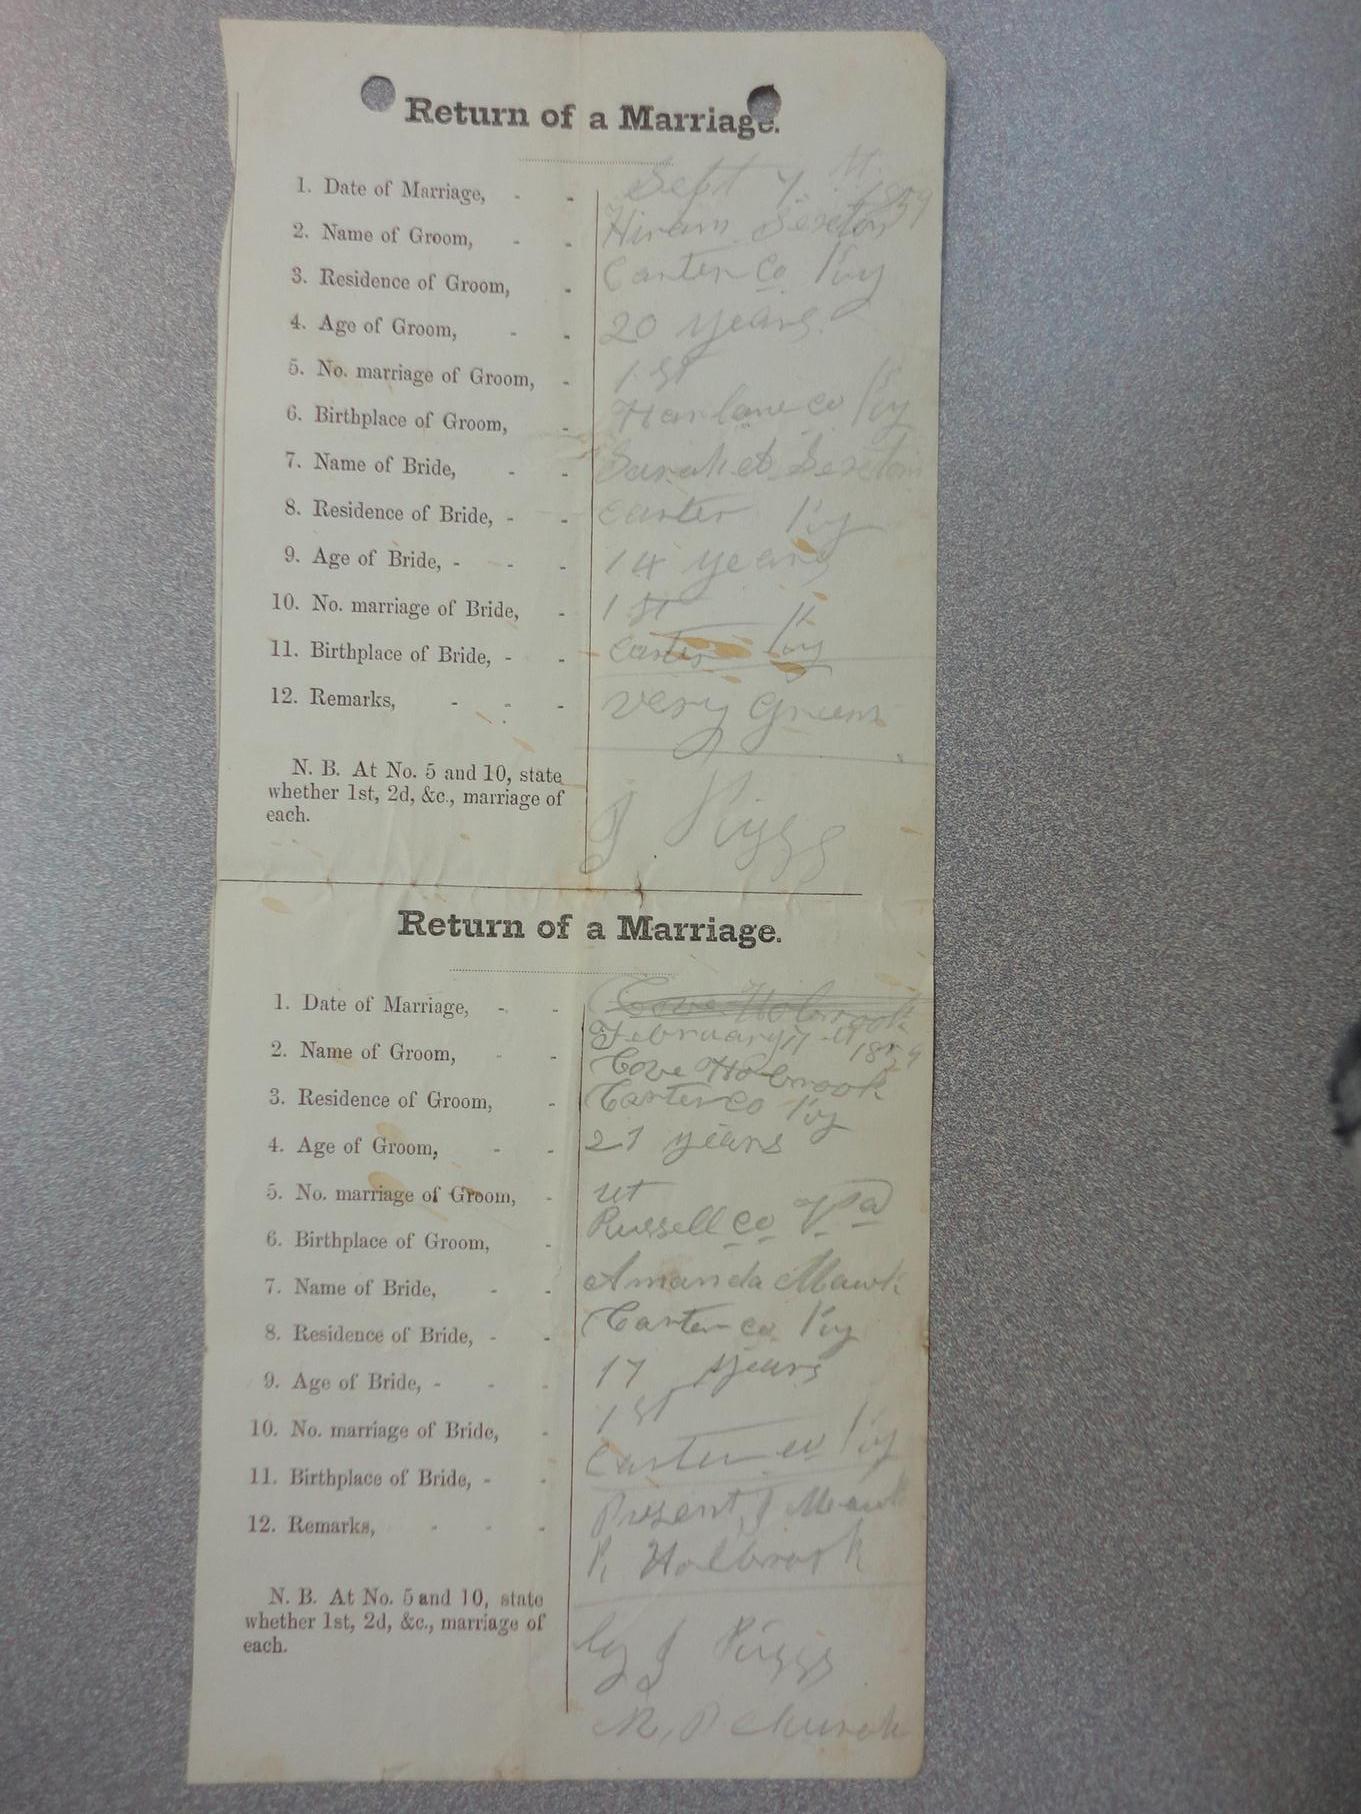 Return of a Marriage.
1. Date of Marriage, - - Sept 7 1859
2. Name of Groom, - - Hiram Sexton
3. Residence of Groom, - Carter Co Ky
4. Age of Groom, - - 20 years
5. No. marriage of Groom, - 1 st
6. Birthplace of Groom, - Harlane co Ky
7. Name of Bride, - - Sarah Sexton
8. Residence of Bride, - - Carter Ky
9. Age of Bride, - - - 14 years
10. No. marriage of Bride, - 1 st
11. Birthplace of Bride, - - Carter Ky
12. Remarks, - - - very Green
N. B. At No. 5 and 10, state
whether 1st, 2d, &c., marriage of
each.
J Riggs
Return of a Marriage.
1. Date of Marriage, - - Cove Holbrook
February 17 1859
2. Name of Groom, - - Cove Holbrook
3. Residence of Groom, - Carter co Ky
4. Age of Groom, - - 21 years
5. No. marriage of Groom, - 1st
6. Birthplace of Groom, - Russell co Va
7. Name of Bride, - - Amanda Mauk
8. Residence of Bride, - - Carter co Ky
9. Age of Bride, - - - 17 years
10. No. marriage of Bride, - 1 st
11. Birthplace of Bride, - - Carter co Ky
12. Remarks, - - - Present, J Mauk
R Holbrook
N. B. At No. 5 and 10, state
whether 1st, 2d, &c., marriage of
each.
by J Riggs
M, P Church